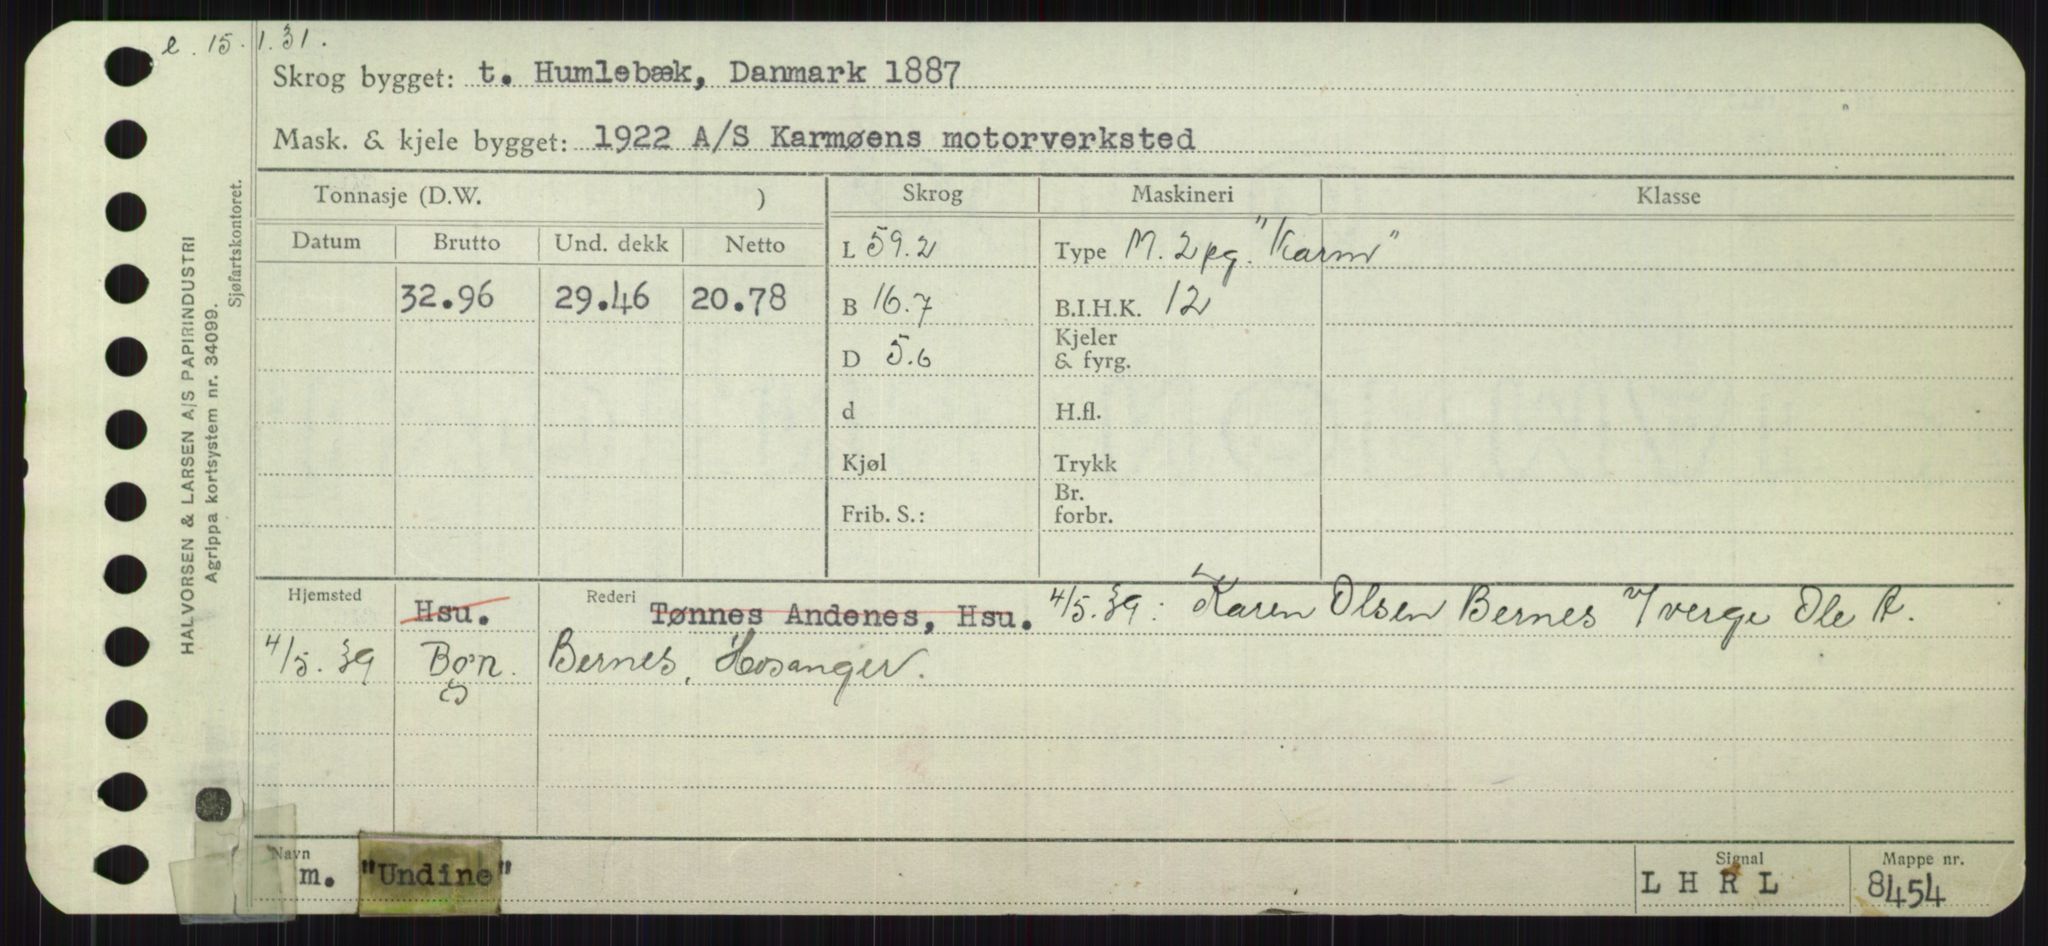 e. 15.1.31.
Skrog bygget: t. Humlebæk, Danmark 1887
Mask. & kjele bygget: 1922 A/S Karmøens motorverksted
HALVORSEN & LARSEN A/S PAPIRINDUSTRI
Agrippa kortsystem nr. 34099.
Sjøfartskontoret.
Tonnasje (D.W. ) Skrog Maskineri Klasse
Datum Brutto Und. dekk Netto L 59.2 Type M. 2 pg. "Karm"
32.96 29.46 20.78 B 16.7 B.I.H.K. 12
D 5.6 Kjeler & fyrg.
d H.fl.
Kjøl Trykk
Frib. S.: Br. forbr.
Hjemsted Hsu. Rederi Tønnes Andenes, Hsu. 4/5.39: Karen Olsen Bernes v/ verge Ole A.
4/5.39 Bg'n. Bernes, Hosanger.
Navn m. "Undine" Signal L H R L Mappe nr. 8454